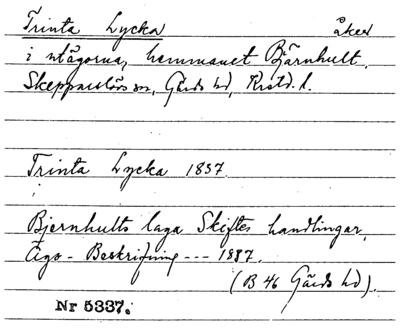 Trinta Lycka åker
i utägorna, hemmanet Bjärnhult,
Skepparslövs sn, Gärds hd, Krstd. l.
Trinta Lycka 1837.
Bjernhults laga Skiftes handlingar,
Ägo-Beskrifning --- 1837.
(B 46 Gärds hd).
Nr 5337.